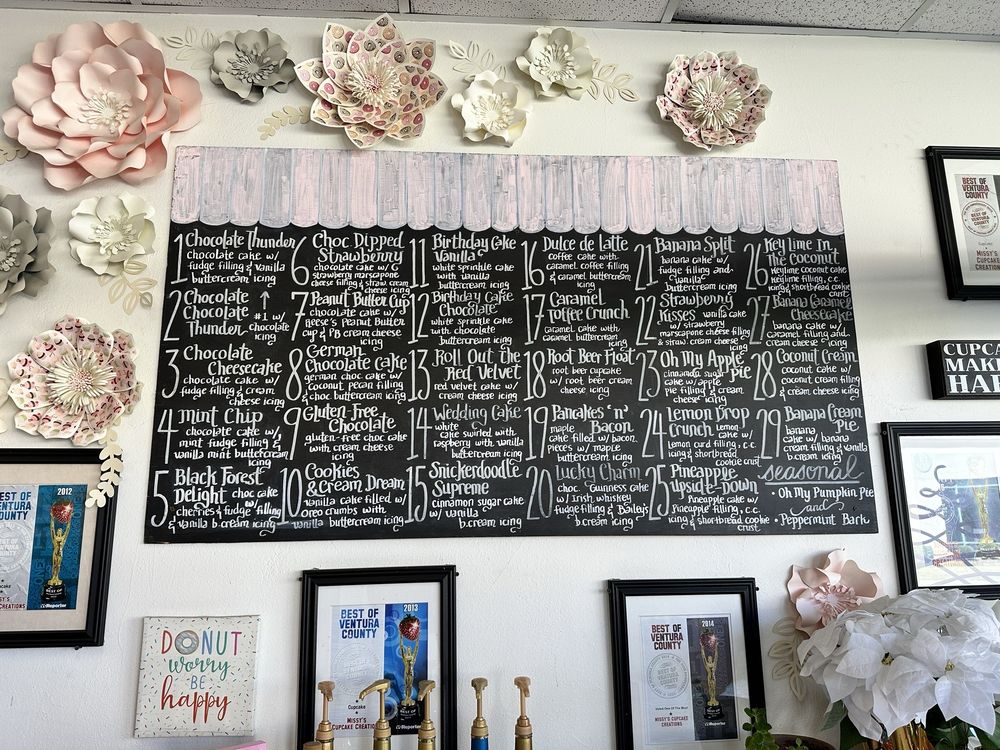 1 Chocolate Thunder
chocolate cake w/
fudge filling & vanilla
buttercream icing
2 Chocolate
Thunder
↑
#1 w/
chocolate
icing
3 Chocolate
Cheesecake
chocolate cake w/
fudge filling & cream
cheese icing
4 Mint Chip
chocolate cake w/
mint fudge filling &
vanilla mint buttercream
icing
5 Black Forest
Delight choc cake
cherries & fudge filling
& vanilla b.cream icing
6 Choc Dipped
Strawberry
chocolate cake w/ c.
strawberry marscapone
cheese filling & straw. cream
cheese icing
7 Peanut Butter Cup
chocolate cake w/
Reese's Peanut Butter
cup & PB cream cheese
icing
8 German
Chocolate Cake
german choc cake w/
coconut pecan filling
& choc buttercream icing
9 Gluten-Free
Chocolate
gluten-free choc cake
with cream cheese
icing
10 Cookies
& Cream Dream
vanilla cake filled w/
oreo crumbs with
vanilla buttercream icing
11 Birthday Cake
Vanilla
white sprinkle cake
with vanilla
buttercream icing
12 Birthday Cake
Chocolate
white sprinkle cake
with chocolate
buttercream icing
13 Roll Out the
Red Velvet
red velvet cake w/
cream cheese icing
14 Wedding Cake
white
cake swirled with
raspberry with vanilla
buttercream icing
15 Snickerdoodle
Supreme
cinnamon sugar cake
w/ vanilla
b.cream icing
16 Dulce de latte
coffee cake with
caramel coffee filling
& caramel buttercream
icing
17 Caramel
Toffee Crunch
caramel cake with
caramel toffee filling
& cream cheese icing
18 Root Beer Float
root beer cupcake
w/ root beer cream
cheese icing
19 Pancakes 'n'
Bacon
maple
cake filled w/ bacon
pieces w/ maple
buttercream icing
20 Lucky Charm
choc "Guinness cake
w/ Irish whiskey
fudge filling & Bailey's
b.cream icing
21 Banana Split
banana cake w/
fudge filling and
vanilla
buttercream icing
22 Strawberry
Kisses vanilla cake
w/ strawberry
marscapone cheese filling
& straw. cream cheese icing
23 Oh My Apple
Pie
cinnamon sugar
cake w/ apple
pie filling & cream
cheese icing
24 Lemon Drop
Crunch lemon
cake w/
lemon curd filling, c.c.
icing & shortbread
cookie crust
25 Pineapple
Upside-Down
Pineapple cake w/
Pineapple filling, c.c.
icing & shortbread cookie
crust
26 Key lime In
The Coconut
Keylime coconut cake
Keylime filling, c.c.
icing & shortbread cookie
crust
27 Banana Caramel
Cheesecake
banana cake w/
caramel filling &
cream cheese icing
28 Coconut Cream
coconut cake w/
coconut cream filling
& cream cheese icing
29 Banana Cream
Pie
banana
cake w/ banana
cream filling & vanilla
b.cream icing
seasonal
• Oh My Pumpkin Pie
and
• Peppermint Bark
BEST OF
VENTURA
COUNTY
CUPCA
MAKE
HAP
BEST OF
VENTURA
COUNTY
2012
Cupcake
MISSY'S
CUPCAKE CREATIONS
Reporter
DONUT
worry
BE
happy
BEST OF
VENTURA
COUNTY
2013
Cupcake
MISSY'S
CUPCAKE CREATIONS
BEST OF
BEST OF
VENTURA
COUNTY
2014
MISSY'S
CUPCAKE CREATIONS
Reporter